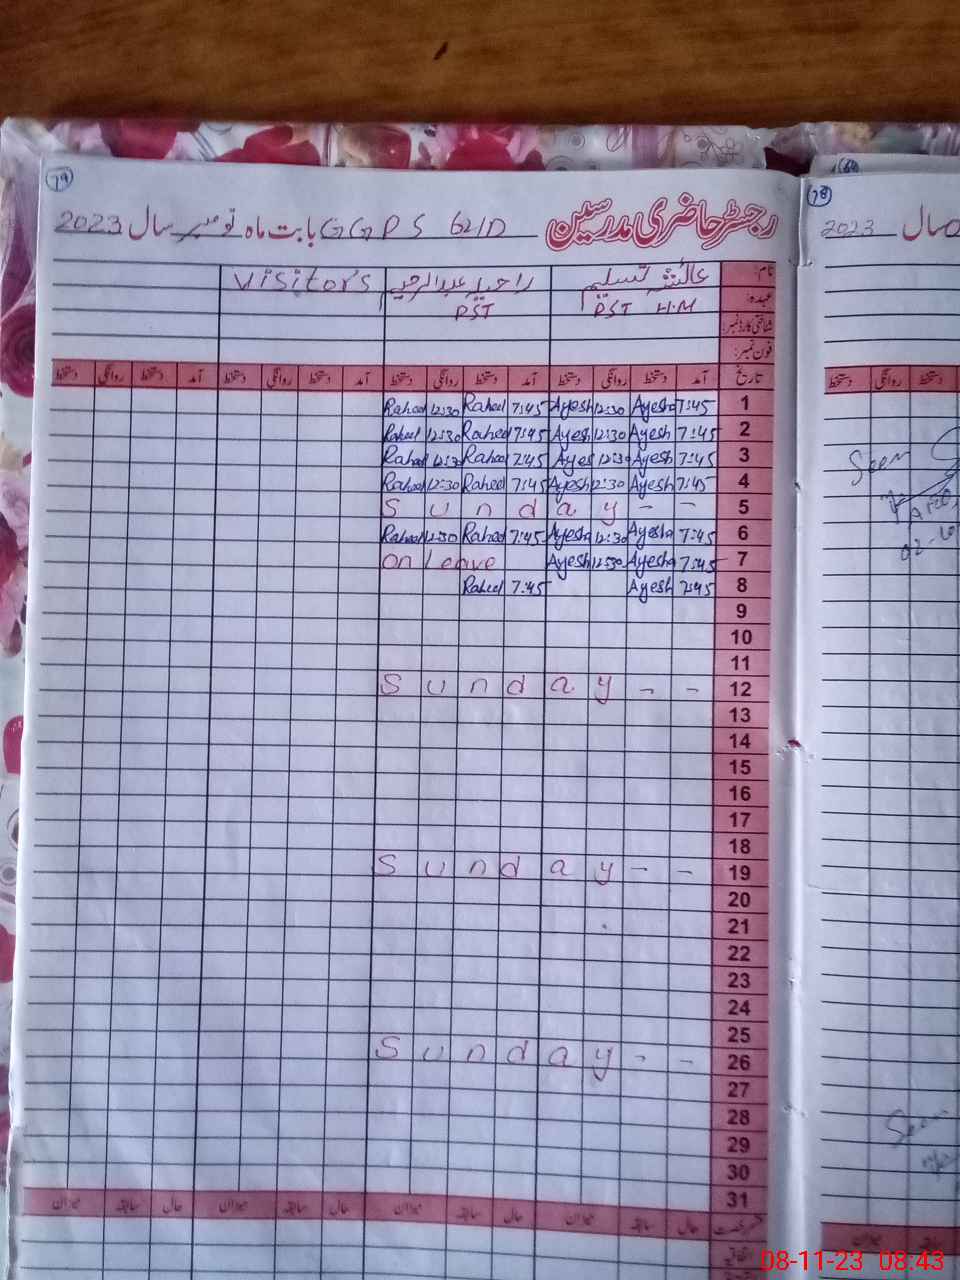 79
رجسٹر حاضری مدرسین GGPS بابت ماہ نومبر سال 2023
نام: عائشہ تسلیم Visitor's
عہدہ: PST H.M PST
شناختی کارڈ نمبر:
فون نمبر:
تاریخ آمد دستخط روانگی دستخط آمد دستخط روانگی دستخط آمد دستخط روانگی دستخط آمد دستخط روانگی دستخط
1 7:45 Ayesha 12:30 Ayesh 7:45 Raheel 12:30 Raheel
2 7:45 Ayesh 12:30 Ayesh 7:45 Raheel 12:30 Raheel
3 7:45 Ayesh 12:30 Ayes 7:45 Raheel 12:30 Raheel
4 7:45 Ayesh 12:30 Ayesh 7:45 Raheel 12:30 Raheel
5 Sunday - -
6 7:45 Ayesha 12:30 Ayesha 7:45 Raheel 12:30 Raheel
7 7:45 Ayesha 12:30 Ayesh on Leave
8 7:45 Ayesh 7:45 Raheel
9
10
11
12 Sunday - -
13
14
15
16
17
18
19 Sunday - -
20
21
22
23
24
25
26 Sunday - -
27
28
29
30
31
حال سابقہ میزان حال سابقہ میزان حال سابقہ میزان حال سابقہ میزان
78
سال 2023
دستخط روانگی دستخط
Seen
Seen
میزان سابقہ
08-11-23 08:43